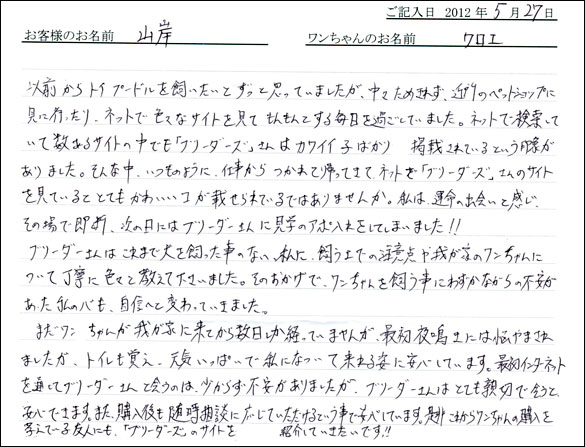 ご記入日 2012年5月27日
お客様のお名前 山岸 ワンちゃんのお名前 クロエ
以前からトイプードルを飼いたいとずっと思っていましたが、中々ふみ出せず、近所のペットショップに
見に行ったり、ネットで色々なサイトを見てもんもんとする毎日を過ごしていました。ネットで検索して
いて数あるサイトの中でも「ブリーダーズ」さんはカワイイ子ばかり 掲載されているという印象が
ありました。そんな中、いつものように、仕事からつかれて帰ってきてネットを「ブリーダーズ」さんのサイト
を見ているととてもかわいいコが載せられているではありませんか。私は、運命の出会いと感じ、
その場で即断、次の日にはブリーダーさんに見学のアポ入れをしてしまいました!!
ブリーダーさんはこれまで犬を飼った事のない私に、飼う上での注意点や我が家のワンちゃんに
ついて丁寧に色々と教えて下さいました。そのおかげで、ワンちゃんを飼う事にわずかながらの不安が
あった私の心も、自信へと変わっていきました。
まだワンちゃんが我が家に来てから数日しか経っていませんが、最初夜鳴きには悩やまされ
ましたが、トイレも覚え、元気いっぱいで私になついて来れる姿に安心しています。最初インターネット
を通してブリーダーさんと会うのは、少からず不安がありましたが、ブリーダーさんはとても親切で会うと
安心できます。また、購入後も随時相談に応じていただけるという事で安心しています。是非これからワンちゃんの購入を
考えている友人にも、「ブリーダーズ」のサイトを 紹介していきたいです!!